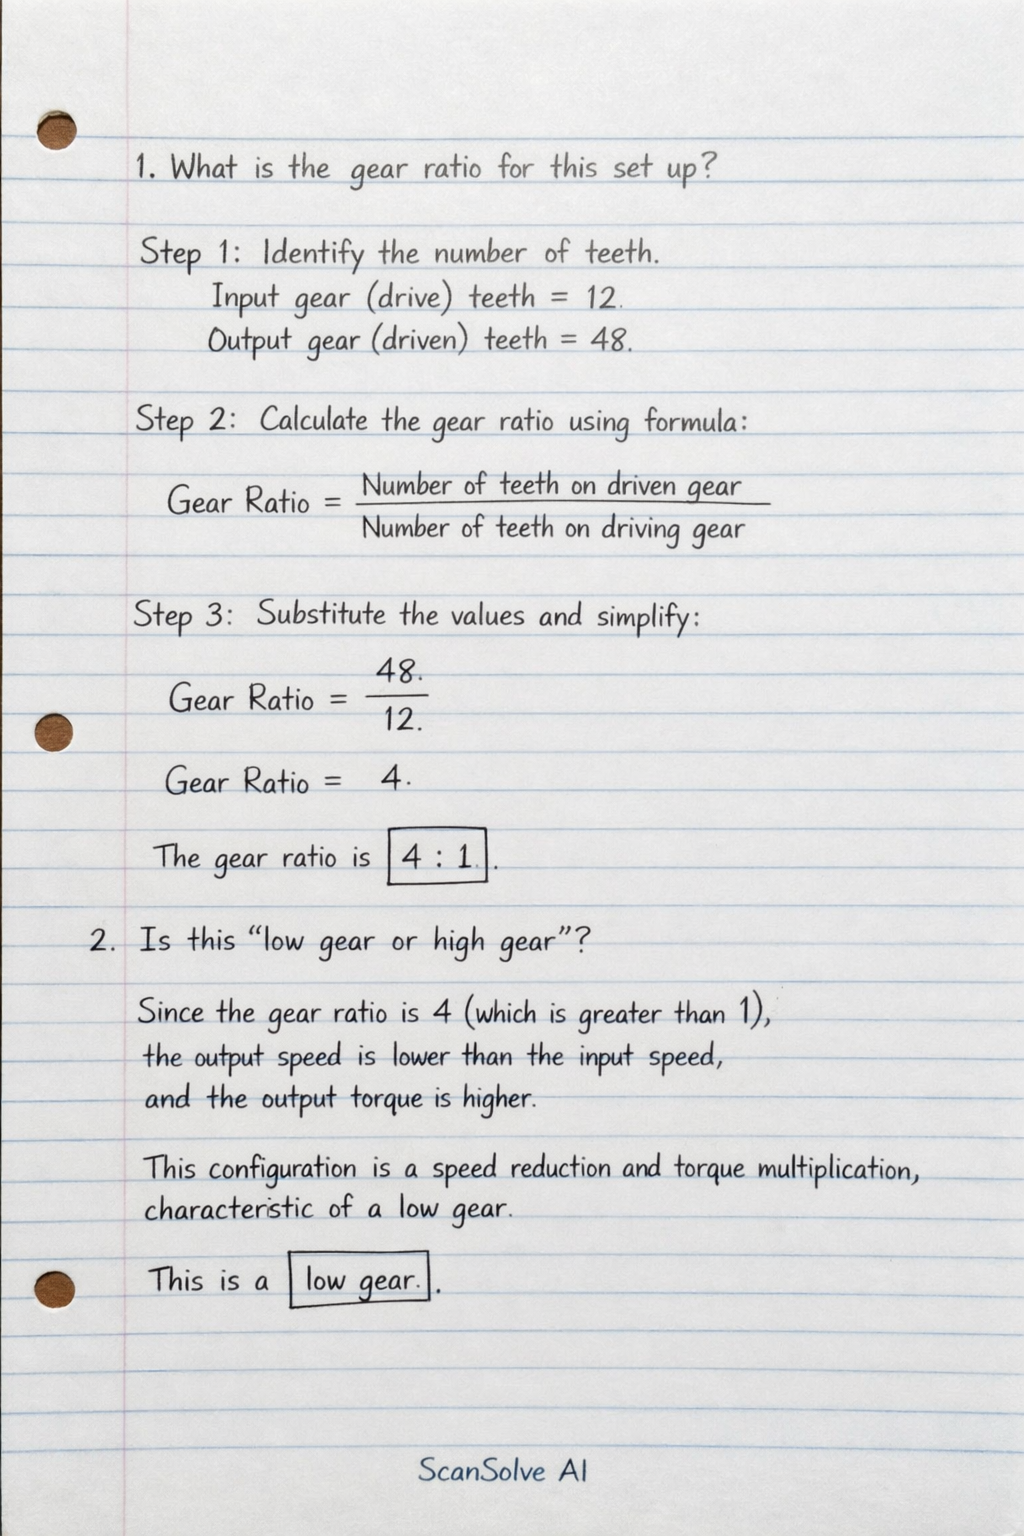 1. What is the gear ratio for this set up?
Step 1: Identify the number of teeth.
Input gear (drive) teeth = 12.
Output gear (driven) teeth = 48.
Step 2: Calculate the gear ratio using formula:
Gear Ratio = Number of teeth on driven gear
Number of teeth on driving gear
Step 3: Substitute the values and simplify:
Gear Ratio = 48.
12.
Gear Ratio = 4.
The gear ratio is 4 : 1. .
2. Is this “low gear or high gear”?
Since the gear ratio is 4 (which is greater than 1),
the output speed is lower than the input speed,
and the output torque is higher.
This configuration is a speed reduction and torque multiplication,
characteristic of a low gear.
This is a low gear. .
ScanSolve AI